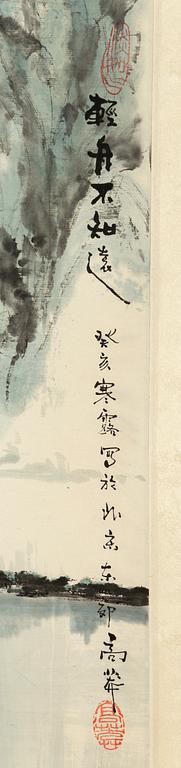 輕舟不知遠
癸亥寒露写於北京东郊高莽